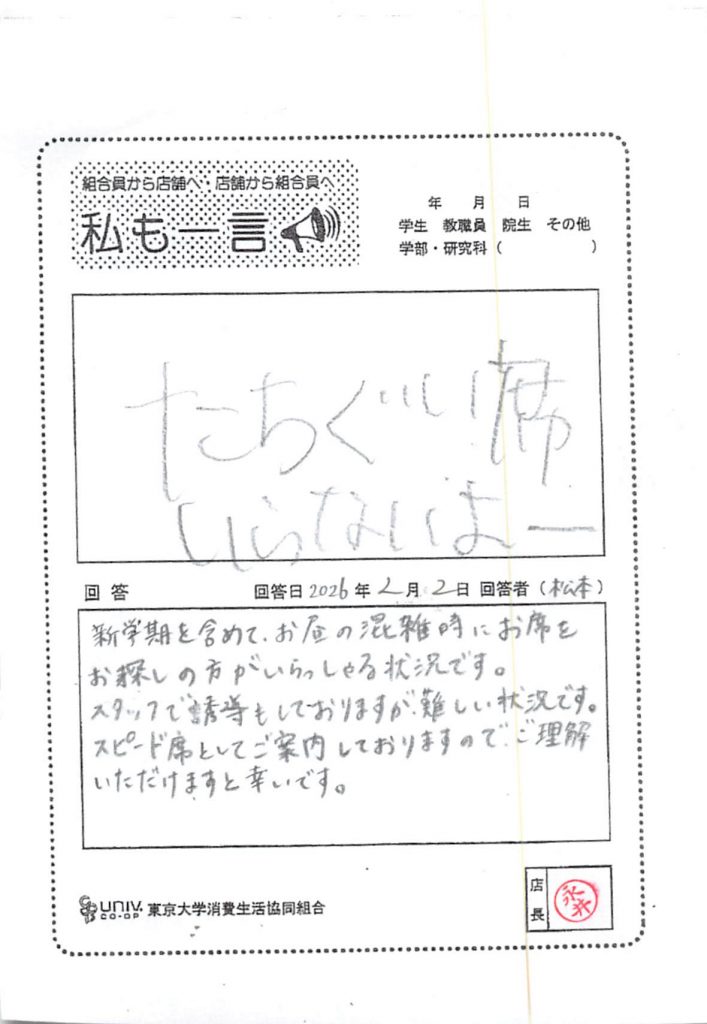 組合員から店舗へ・店舗から組合員へ
私も一言
年 月 日
学生 教職員 院生 その他
学部・研究科 ( )
たちぐいい席
いらないよー
回答 回答日 2026年 2月 2日 回答者 (松本)
新学期を含めて、お昼の混雑時にお席を
お探しの方がいらっしゃる状況です。
スタッフで誘導もしておりますが、難しい状況です。
スピード席としてご案内しておりますので、ご理解
いただけますと幸いです。
UNIV. CO-OP 東京大学消費生活協同組合
店長